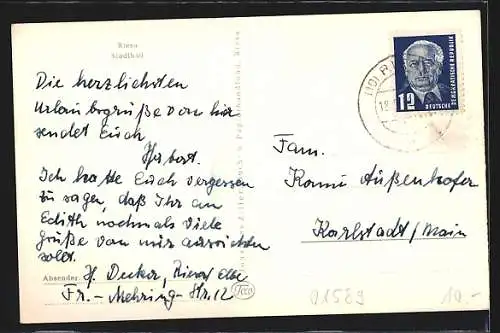 Riesa
Stadtball
Die herzlichsten
Urlaubsgrüße von hier
sendet Euch
Herbert.
Ich hatte Euch vergessen
zu sagen, daß Ihr an
Edith nochmals viele
Grüße von mir ausrichten
sollt.
Absender: H. Decker, Riesa/Elbe
Fr.-Mehring-Str. 12
12
DEUTSCHE
DEMOKRATISCHE REPUBLIK
Fam.
Außenhofer
Karlstadt/Main
01589
10.-